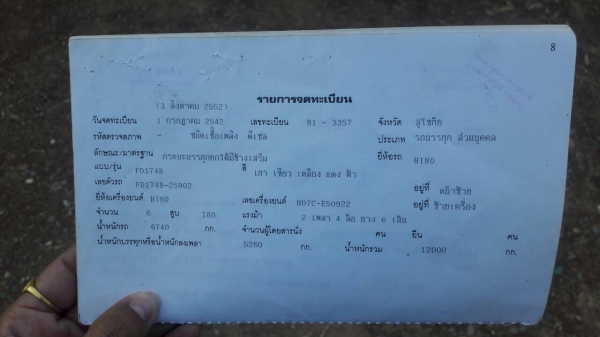 8
รายการจดทะเบียน
(3 สิงหาคม 2552)
วันจดทะเบียน 1 กรกฎาคม 2542 เลขทะเบียน 81 - 3357 จังหวัด สุโขทัย
รหัสตรวจสภาพ - ชนิดเชื้อเพลิง ดีเซล ประเภท รถบรรทุก ส่วนบุคคล
ลักษณะ/มาตรฐาน กระบะบรรทุกยกได้มีข้างเสริม ยี่ห้อรถ HINO
แบบ/รุ่น FD174B สี เทา เขียว เหลือง แดง ฟ้า
เลขตัวรถ FD174B-25902 อยู่ที่ หน้าซ้าย
ยี่ห้อเครื่องยนต์ HINO เลขเครื่องยนต์ H07C-E50922 อยู่ที่ ซ้ายเครื่อง
จำนวน 6 สูบ 180 แรงม้า 2 เพลา 4 ล้อ ยาง 6 เส้น
น้ำหนักรถ 6740 กก. จำนวนผู้โดยสารนั่ง คน ยืน คน
น้ำหนักบรรทุกหรือน้ำหนักลงเพลา 5260 กก. น้ำหนักรวม 12000 กก.